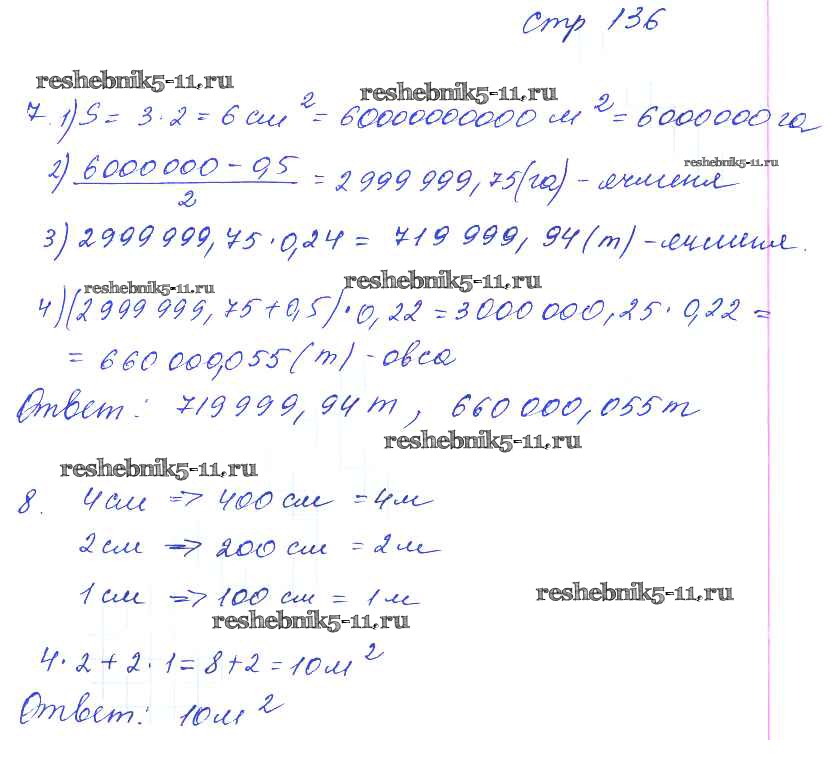 стр 136
reshebnik5-11.ru
reshebnik5-11.ru
7. 1) S = 3 · 2 = 6 см² = 60000000000 м² = 6000000 га
reshebnik5-11.ru
2) (6000000 - 0,5)/2 = 2999999,75(га) - ячменя
3) 2999999,75 · 0,24 = 719999,94(т) - ячменя.
reshebnik5-11.ru
reshebnik5-11.ru
4) (2999999,75 + 0,5) · 0,22 = 3000000,25 · 0,22 =
= 660000,055(т) - овса
Ответ: 719999,94т, 660000,055т
reshebnik5-11.ru
reshebnik5-11.ru
8. 4см => 400 см = 4м
2см => 200 см = 2м
1см => 100 см = 1м
reshebnik5-11.ru
reshebnik5-11.ru
4 · 2 + 2 · 1 = 8 + 2 = 10м²
Ответ: 10м²